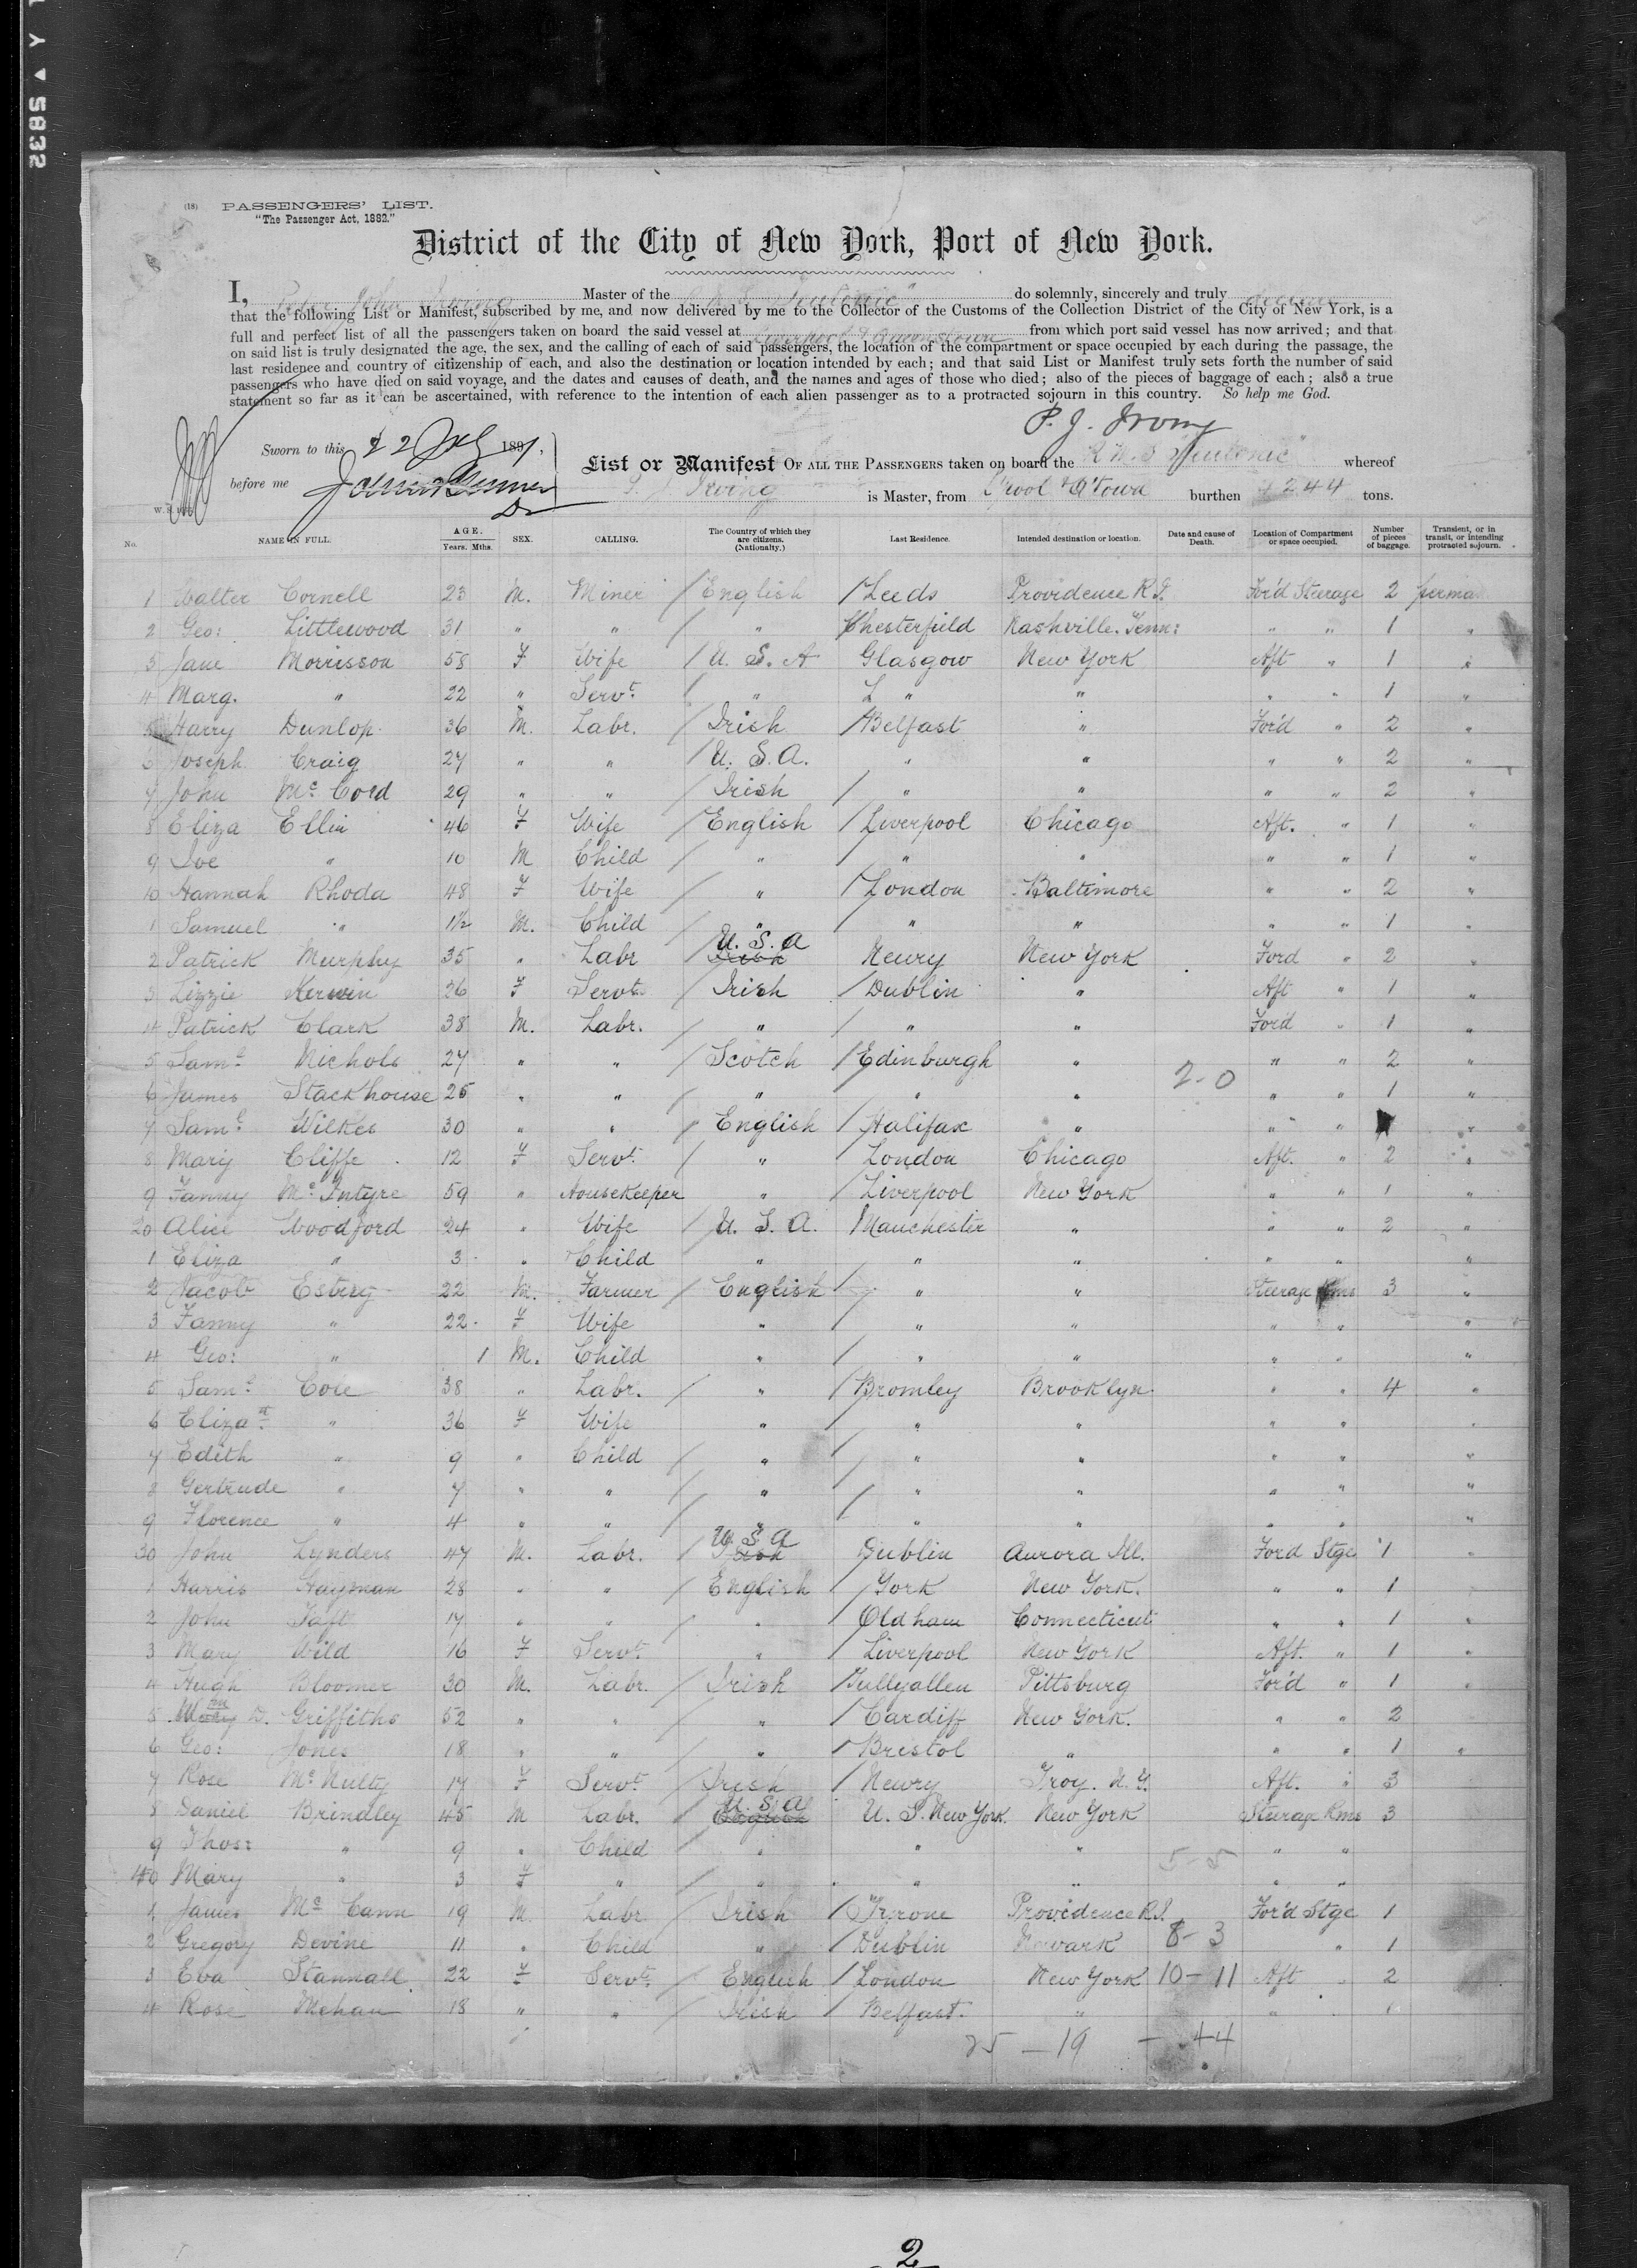 Y ▲ 5832
(18) PASSENGERS' LIST.
"The Passenger Act, 1882."
District of the City of New York, Port of New York.
I, Peter John Irving Master of the R.M.S. Teutonic" do solemnly, sincerely and truly declare
that the following List or Manifest, subscribed by me, and now delivered by me to the Collector of the Customs of the Collection District of the City of New York, is a
full and perfect list of all the passengers taken on board the said vessel at Liverpool & Queenstown from which port said vessel has now arrived; and that
on said list is truly designated the age, the sex, and the calling of each of said passengers, the location of the compartment or space occupied by each during the passage, the
last residence and country of citizenship of each, and also the destination or location intended by each; and that said List or Manifest truly sets forth the number of said
passengers who have died on said voyage, and the dates and causes of death, and the names and ages of those who died; also of the pieces of baggage of each; also a true
statement so far as it can be ascertained, with reference to the intention of each alien passenger as to a protracted sojourn in this country. So help me God.
P. J. Irving
Sworn to this 22 July 1891.
before me
List or Manifest OF ALL THE PASSENGERS taken on board the R.M.S "Teutonic" whereof
P. J. Irving is Master, from L'pool & Q'town burthen 4244 tons.
No. NAME IN FULL. AGE. Years. Mths. SEX. CALLING. The Country of which they are citizens. (Nationality.) Last Residence. Intended destination or location. Date and cause of Death. Location of Compartment or space occupied. Number of pieces of baggage. Transient, or in transit, or intending protracted sojourn.
1 Walter Cornell 23 M. Miner / English / Leeds Providence R.I. For'd Steerage 2 perma
2 Geo: Littlewood 31 " " / " Chesterfield Nashville. Tenn: " " 1 "
3 Jane Morrisson 58 F Wife / U. S. A Glasgow New York Aft " 1 "
4 Marg. " 22 " Servt. / " " " " " 1 "
5 Harry Dunlop. 36 M. Labr. / Irish / Belfast " For'd " 2 "
6 Joseph Craig 27 " " / U. S. A. " " " " 2 "
7 John Mc Cord 29 " " / Irish / " " " " 2 "
8 Eliza Ellin 46 F Wife / English / Liverpool Chicago Aft. " 1 "
9 Joe " 10 M Child / " / " " " " 1 "
10 Hannah Rhoda 48 F Wife / " / London Baltimore " " 2 "
1 Samuel " 1½ M. Child / " / " " " " 1 "
2 Patrick Murphy 35 " Labr / U. S. A Irish Newry New York Ford " 2 "
3 Lizzie Kerwin 26 F Servt. / Irish / Dublin " Aft " 1 "
4 Patrick Clark 38 M. Labr. / " / " " For'd " 1 "
5 Saml Nichols 27 " " / Scotch / Edinburgh " " " 2 "
2-0
6 James Stackhouse 25 " " / " / " " " " 1 "
7 Saml Wilkes 30 " " / English / Halifax " " " "
8 Mary Cliffe 12 F Servt. / " London Chicago Aft. " 2 "
9 Fanny Mc Intyre 59 " Housekeeper " / Liverpool New York " " 1 "
20 Alice Woodford 24 " Wife / U. S. A. / Manchester " " " 2 "
1 Eliza " 3 " Child " " " " " "
2 Jacob Estrey 22 M. Farmer / English / " " Steerage Rms 3 "
3 Fanny " 22 F Wife " / " " " " "
4 Geo: " 1 M. Child " / " " " " "
5 Saml Cole 38 " Labr. / " / Bromley Brooklyn " " 4 "
6 Elizath " 36 F Wife " / " " " " "
7 Edith " 9 " Child / " / " " " " "
8 Gertrude " 7 " " / " / " " " " "
9 Florence " 4 " " / " / " " " " "
30 John Lynders 47 M. Labr. / U S A Irish Dublin Aurora Ill. Ford Stge 1 "
1 Harris Hayman 28 " " / English / York New York. " " 1 "
2 John Taft 17 " " / " / Oldham Connecticut " " 1 "
3 Mary Wild 16 F Servt. / " / Liverpool New York Aft. " 1 "
4 Hugh Bloomer 30 M. Labr. / Irish / Tullyallen Pittsburg For'd " 1 "
5 Wm D. Griffiths 52 " " / " / Cardiff New York. " " 2
6 Geo: Jones 18 " " / " / Bristol " " " 1 "
7 Rose Mc Nulty 17 F Servt. / Irish / Newry Troy. N.Y. Aft. " 3
8 Daniel Brindley 45 M Labr. / U. S. A English U. S. New York. New York Steerage Rms 3
9 Thos: " 9 " Child / " " " " "
5-5
40 Mary " 3 F " / " " " " "
1 James Mc Cann 19 M. Labr / Irish / Tyrone Providence R.I. For'd Stge 1
2 Gregory Devine 11 " Child / " / Dublin Newark 8-3 " 1
3 Eva Stannall 22 F Servt. / English / London New York 10-11 Aft " 2
4 Rose Mehan 18 " " / Irish / Belfast. " " " 1
25 - 19 - 44
2